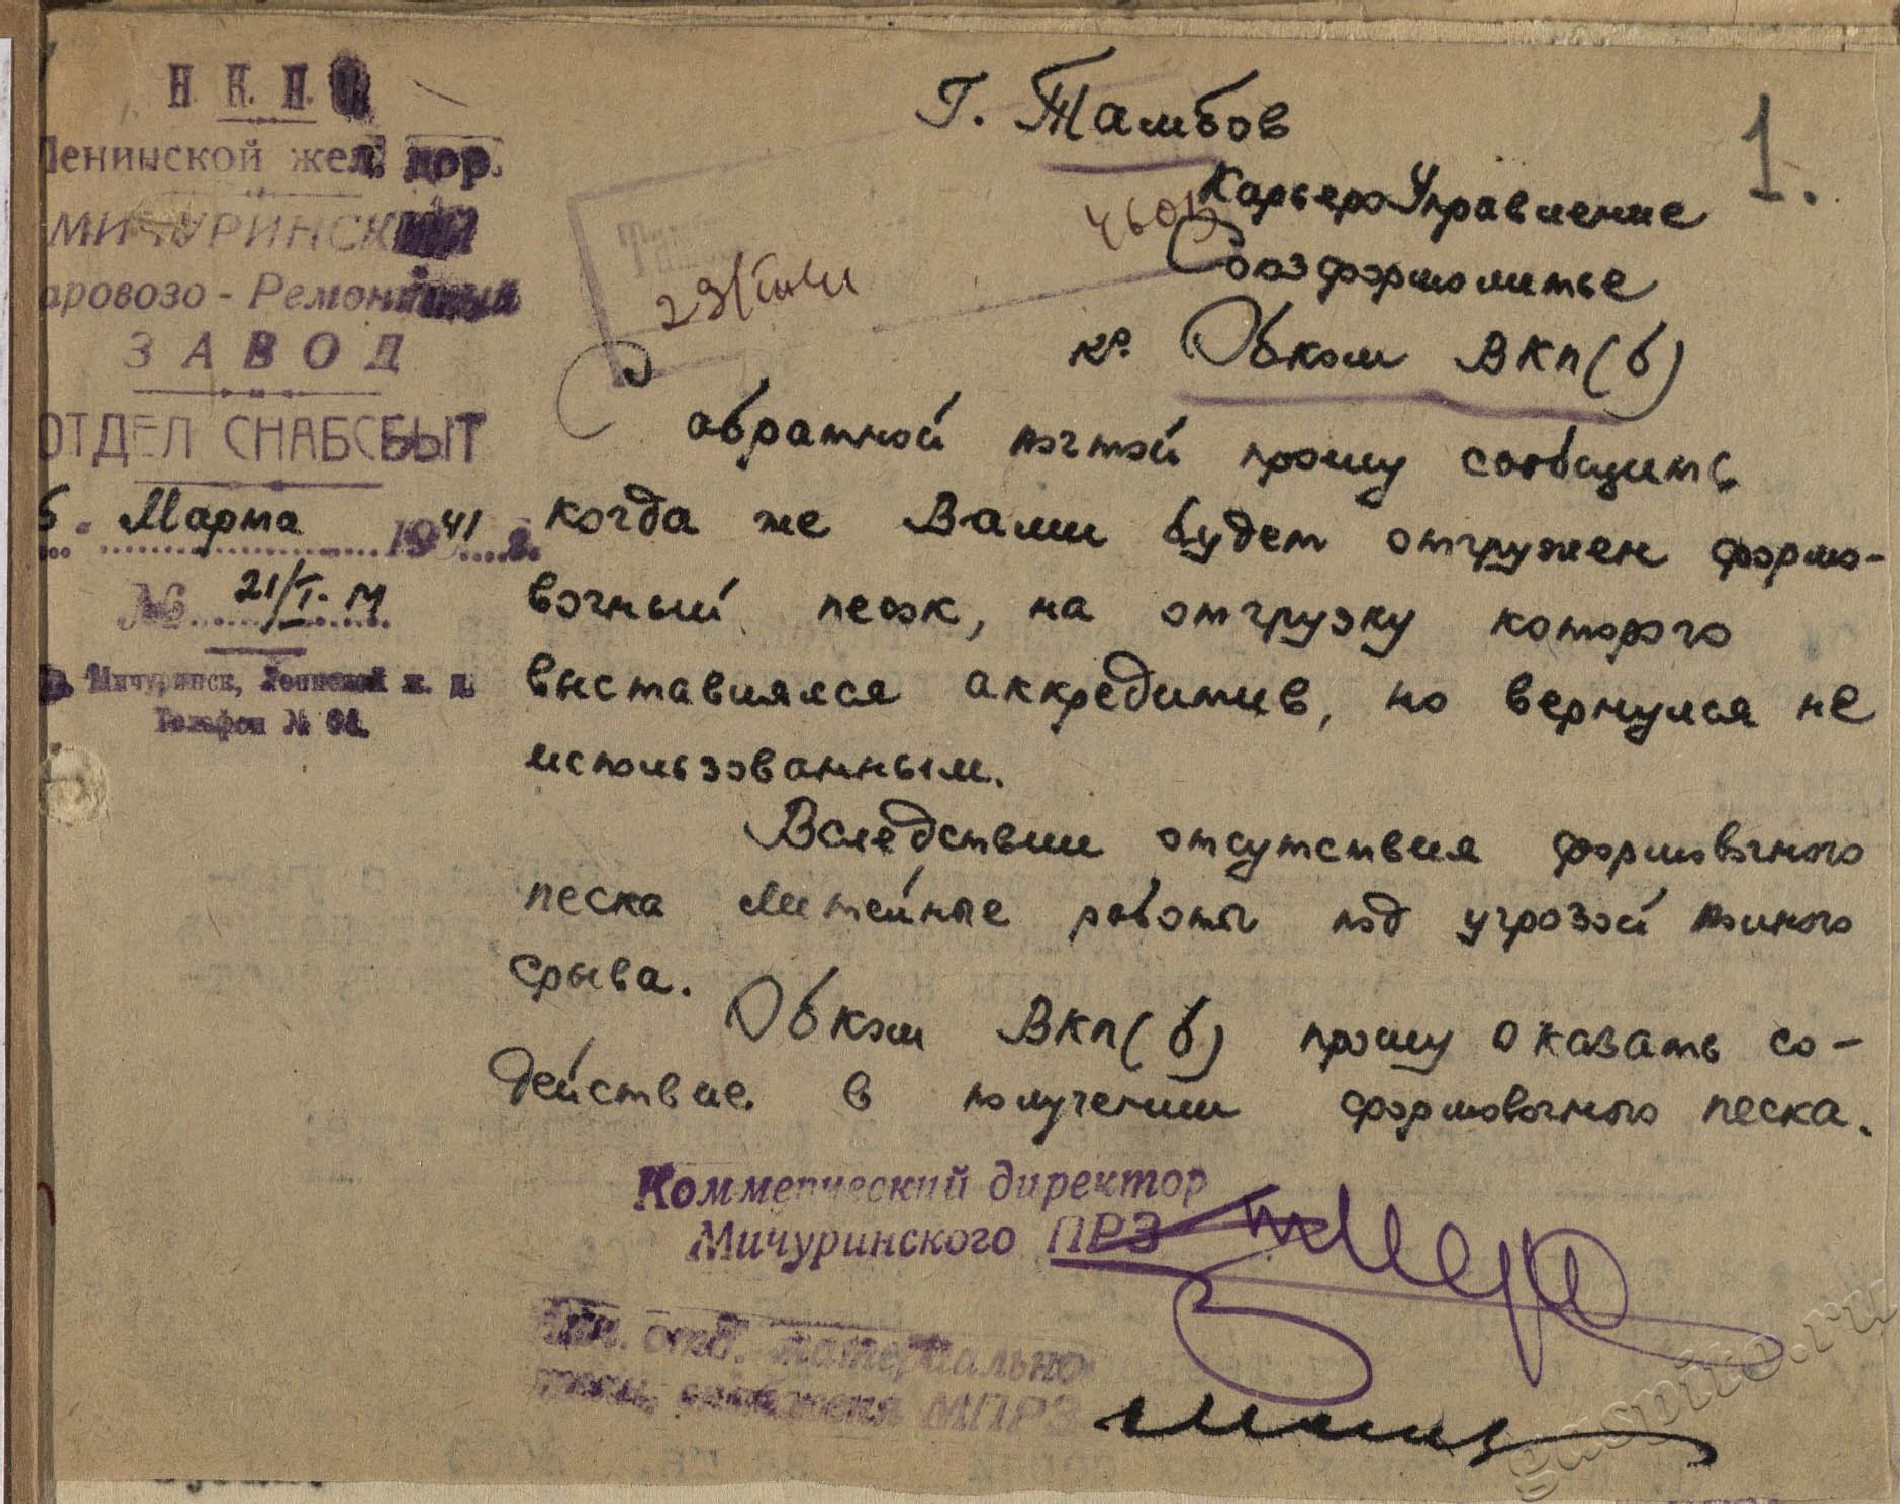 Н. К. П. С.
Ленинской жел. дор.
МИЧУРИНСКИЙ
Паровозо-Ремонтный
ЗАВОД
ОТДЕЛ СНАБСБЫТ
5 Марта 1941 г.
№ 21/I-М
Мичуринск, Ленинской ж. д.
Телефон №
1.
Г. Тамбов
КарьероУправление
Союзформолитье
Обком ВКП(б)
С обратной почтой прошу сообщить
когда же Вами будет отгружен формо-
вочный песок, на отгрузку которого
выставлялся аккредитив, но вернулся не
использованным.
Вследствии отсутствия формовочного
песка литейные работы под угрозой полного
срыва.
Обком ВКП(б) прошу оказать со-
действие в получении формовочного песка.
Коммерческий директор
Мичуринского ПРЗ
Нач. отд. материально
техн. снабжения МПРЗ
gaspito.ru